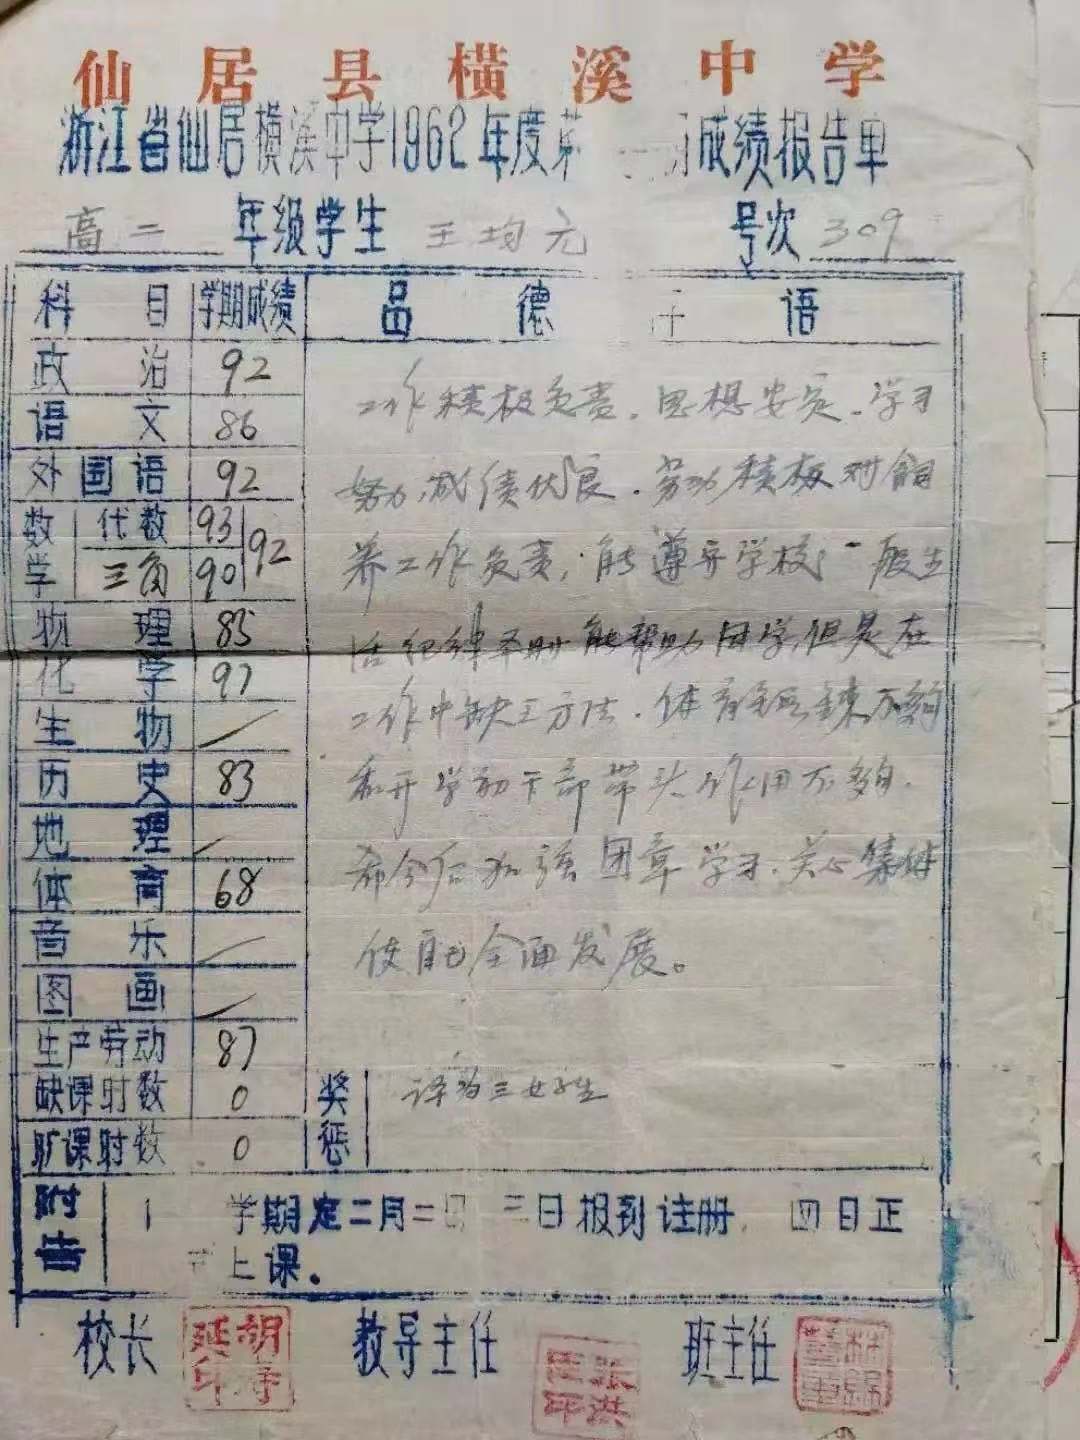 仙居县横溪中学
浙江省仙居横溪中学1962年度第 期成绩报告单
高二 年级学生 王均元 号次 309
科目 学期成绩 品德 评语
政治 92
语文 86
外国语 92
数学 代数 93 92
三角 90
物理 85
化学 97
生物 /
历史 83
地理 /
体育 68
音乐 /
图画 /
生产劳动 87
缺课时数 0
旷课时数 0
工作积极负责.思想安定.学习
努力,成绩优良.劳动积极对饲
养工作负责,能遵守学校一般生
活纪律 能帮助同学,但是在
工作中缺乏方法.体育锻炼不够
和开学初干部带头作用不够.
希今后加强团章学习.关心集体
使自己全面发展。
奖惩 评为三好生
附告 1 学期定二月二日 三日报到注册, 四日正
式上课.
校长 教导主任 班主任